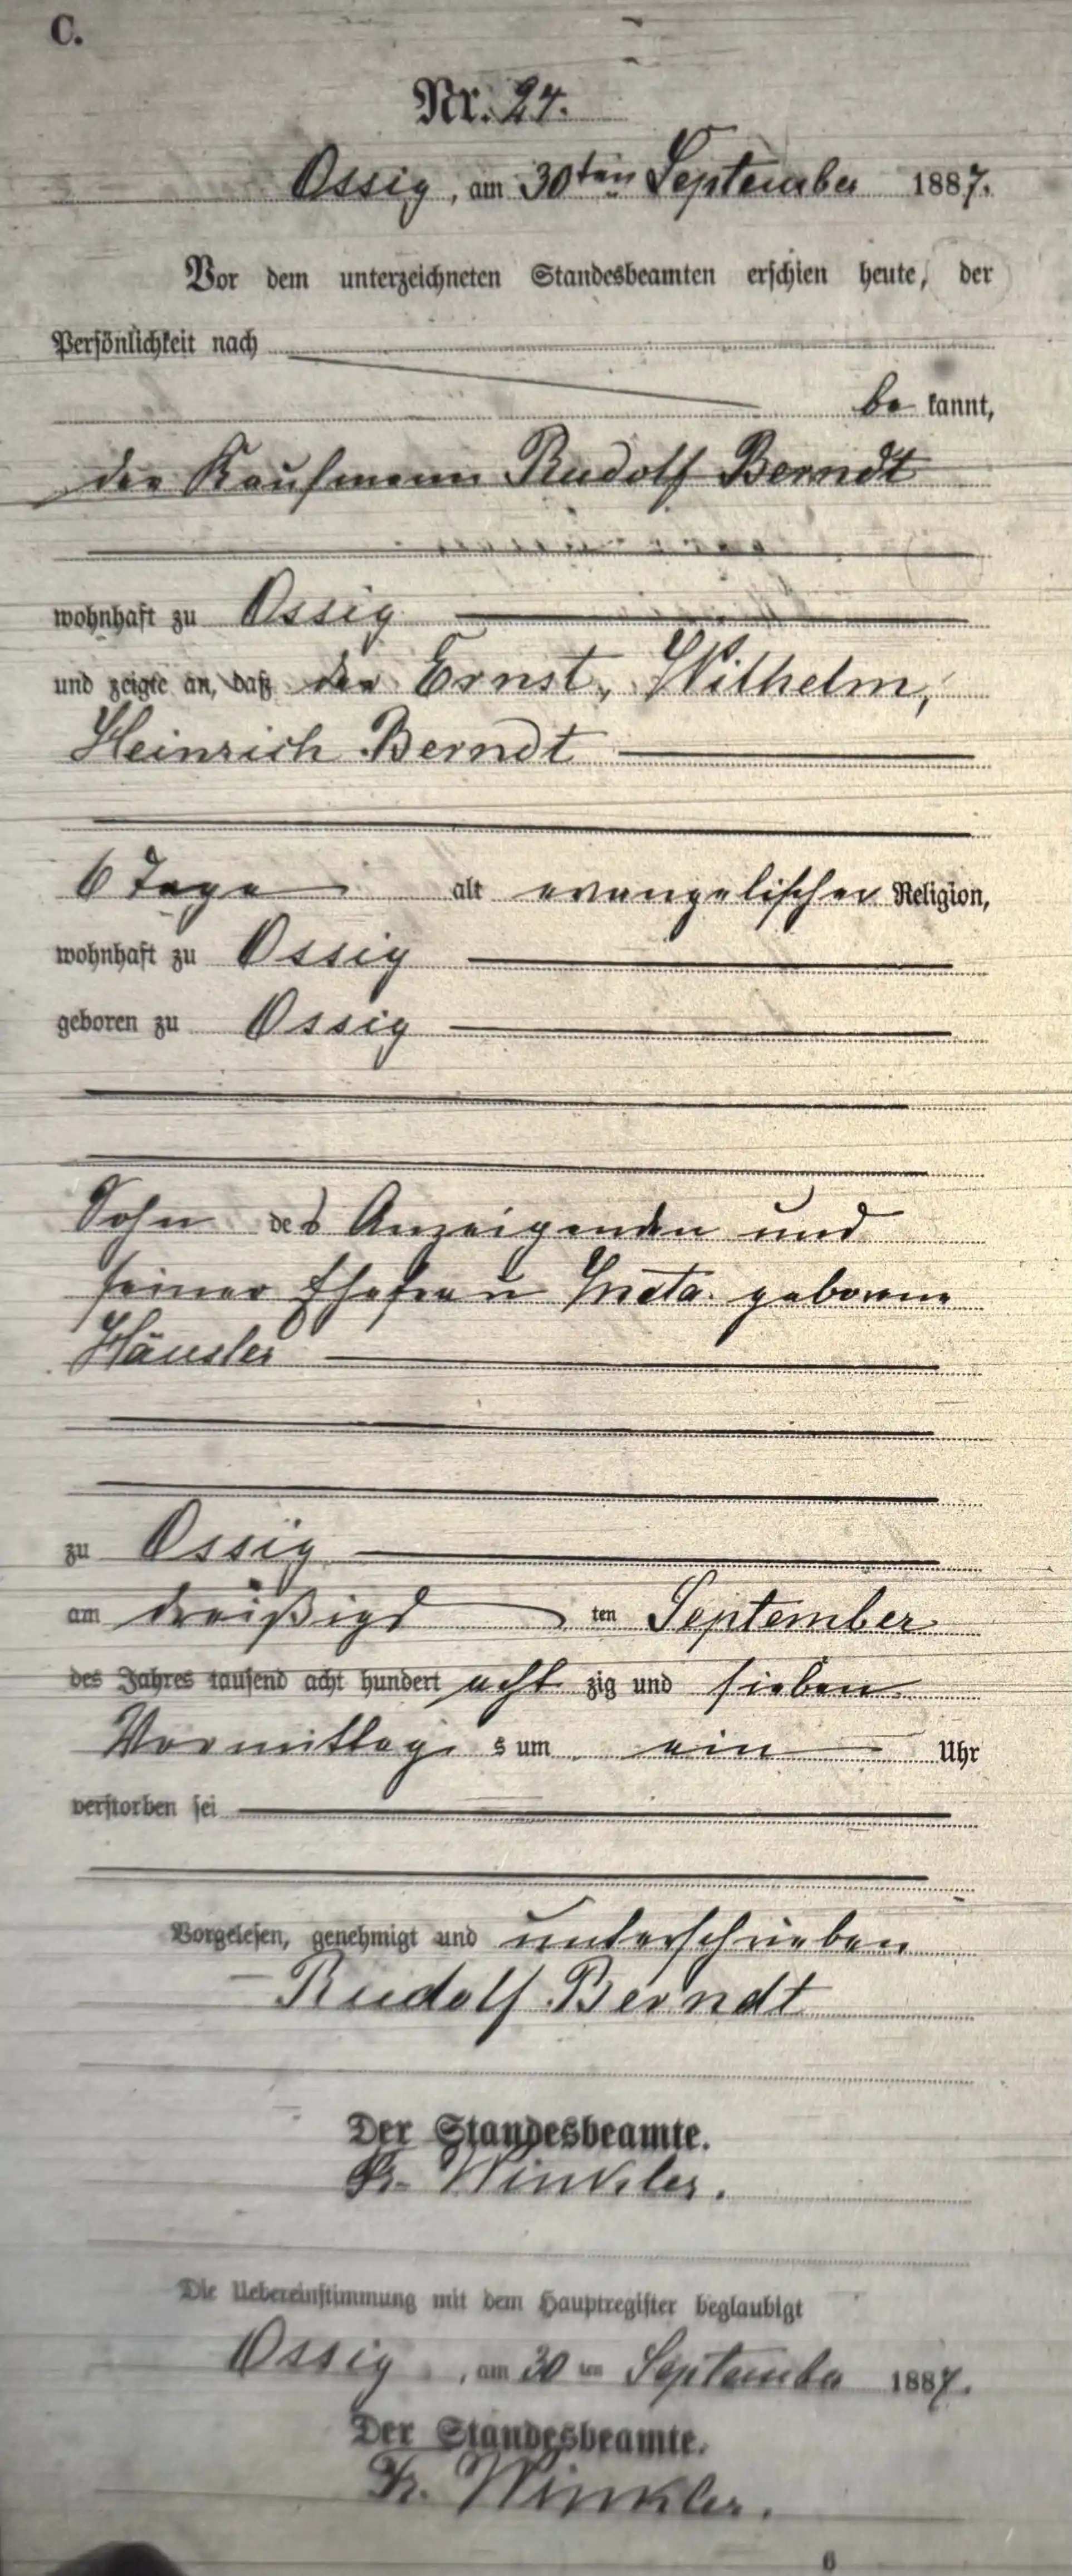 C.
Nr. 24.
Ossig, am 30ten September 1887.
Vor dem unterzeichneten Standesbeamten erschien heute, der
Persönlichkeit nach
be kannt,
der Kaufmann Rudolf Berndt
wohnhaft zu Ossig
und zeigte an, daß der Ernst, Wilhelm,
Heinrich Berndt
6 Tage alt evangelischer Religion,
wohnhaft zu Ossig
geboren zu Ossig
Sohn des Anzeigenden und
seiner Ehefrau Meta geborene
Häusler
zu Ossig
am dreißigs ten September
des Jahres tausend acht hundert acht zig und sieben
Vormittag s um ein Uhr
verstorben sei
Vorgelesen, genehmigt und unterschrieben
Rudolf Berndt
Der Standesbeamte.
Winkler.
Die Uebereinstimmung mit dem Hauptregister beglaubigt
Ossig, am 30 ten September 1887.
Der Standesbeamte.
Winkler.
6